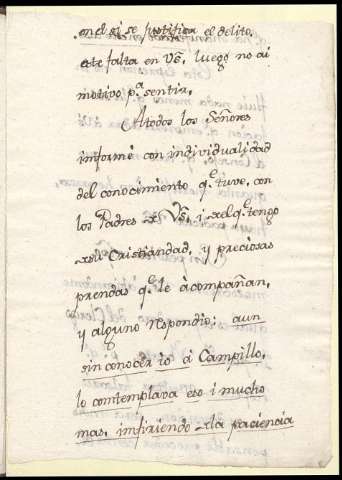 en el si se justifica el delito.
este falta en VS, luego no ai
motivo p.a sentir,
A todos los Señores
informé con individualidad
del conocimiento q.e tuve, con
los Padres de VS, i del q.e tengo
de su Cristiandad, y preciosas
prendas q.e le acompañan,
y alguno respondio; aun
sin conocer io á Campillo,
lo comtemplava eso i mucho
mas, infiriendo de la paciencia